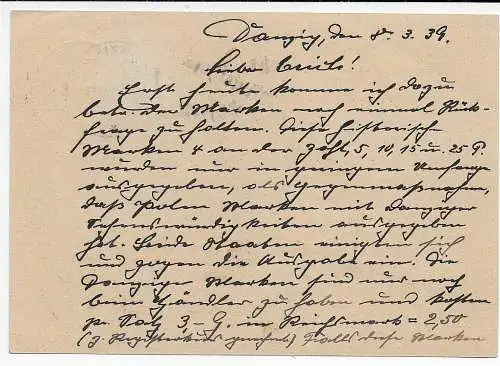 Danzig, den 8. 3. 39.
Liebe
Erst heute komme ich dazu
betr. der Marken noch einmal Rück-
frage zu halten. Diese historische
Marken 4 an der Zahl, 5, 10, 15 u. 25 P.
wurden nur in geringem Umfange
ausgegeben, als Gegenmaßnahme,
daß Polen Marken mit Danziger
Sehenswürdigkeiten ausgegeben
hat. Beide Staaten einigten sich
und zogen die Ausgabe ein. Die
Danziger Marken sind nur noch
beim Händler zu haben und kosten
pr. Satz 3,- G. in Reichsmark = 2,50
Falls diese Marken